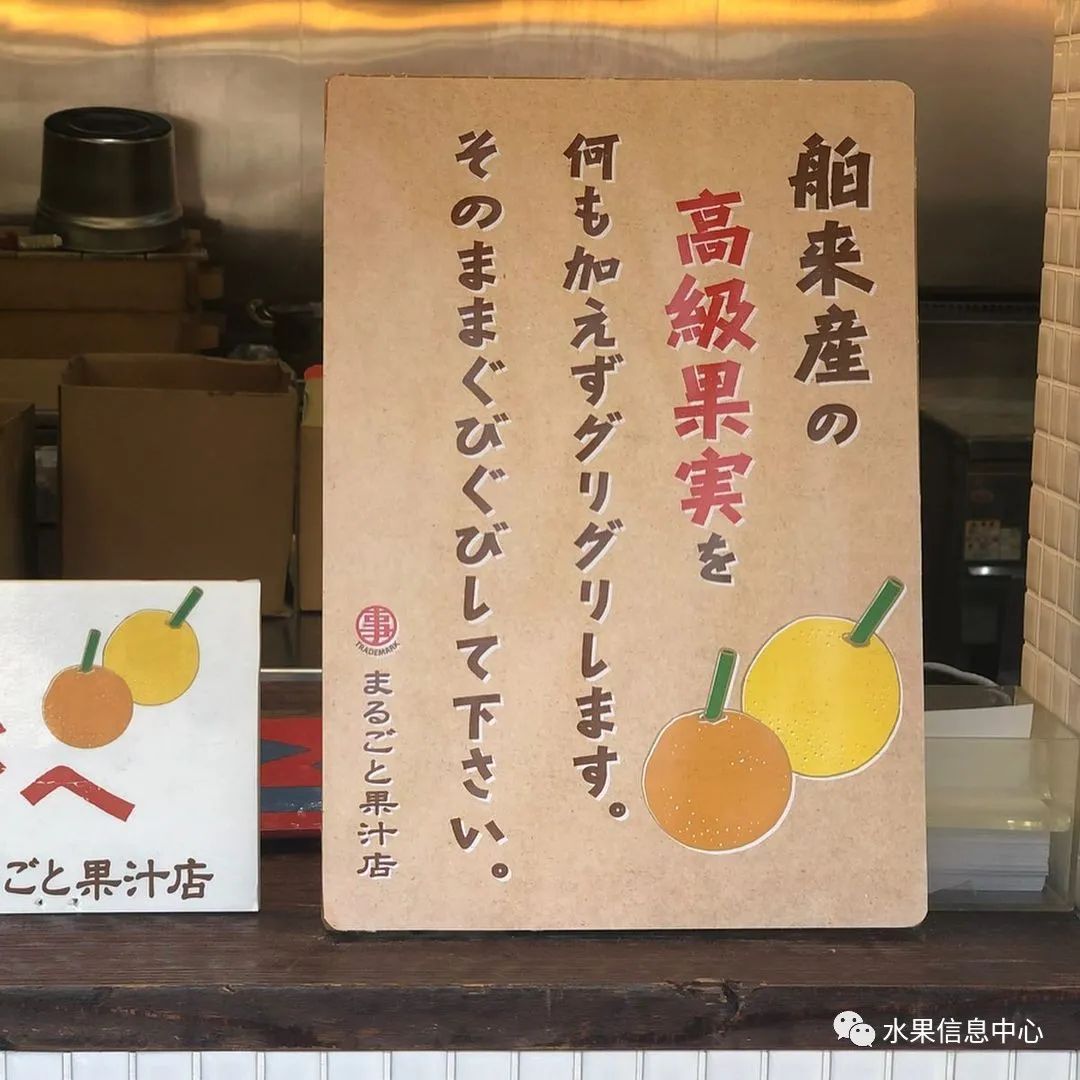 舶来産の
高級果実を
何も加えずグリグリします。
そのままぐびぐびして下さい。
事
TRADEMARK
まるごと果汁店
へ
ごと果汁店
水果信息中心